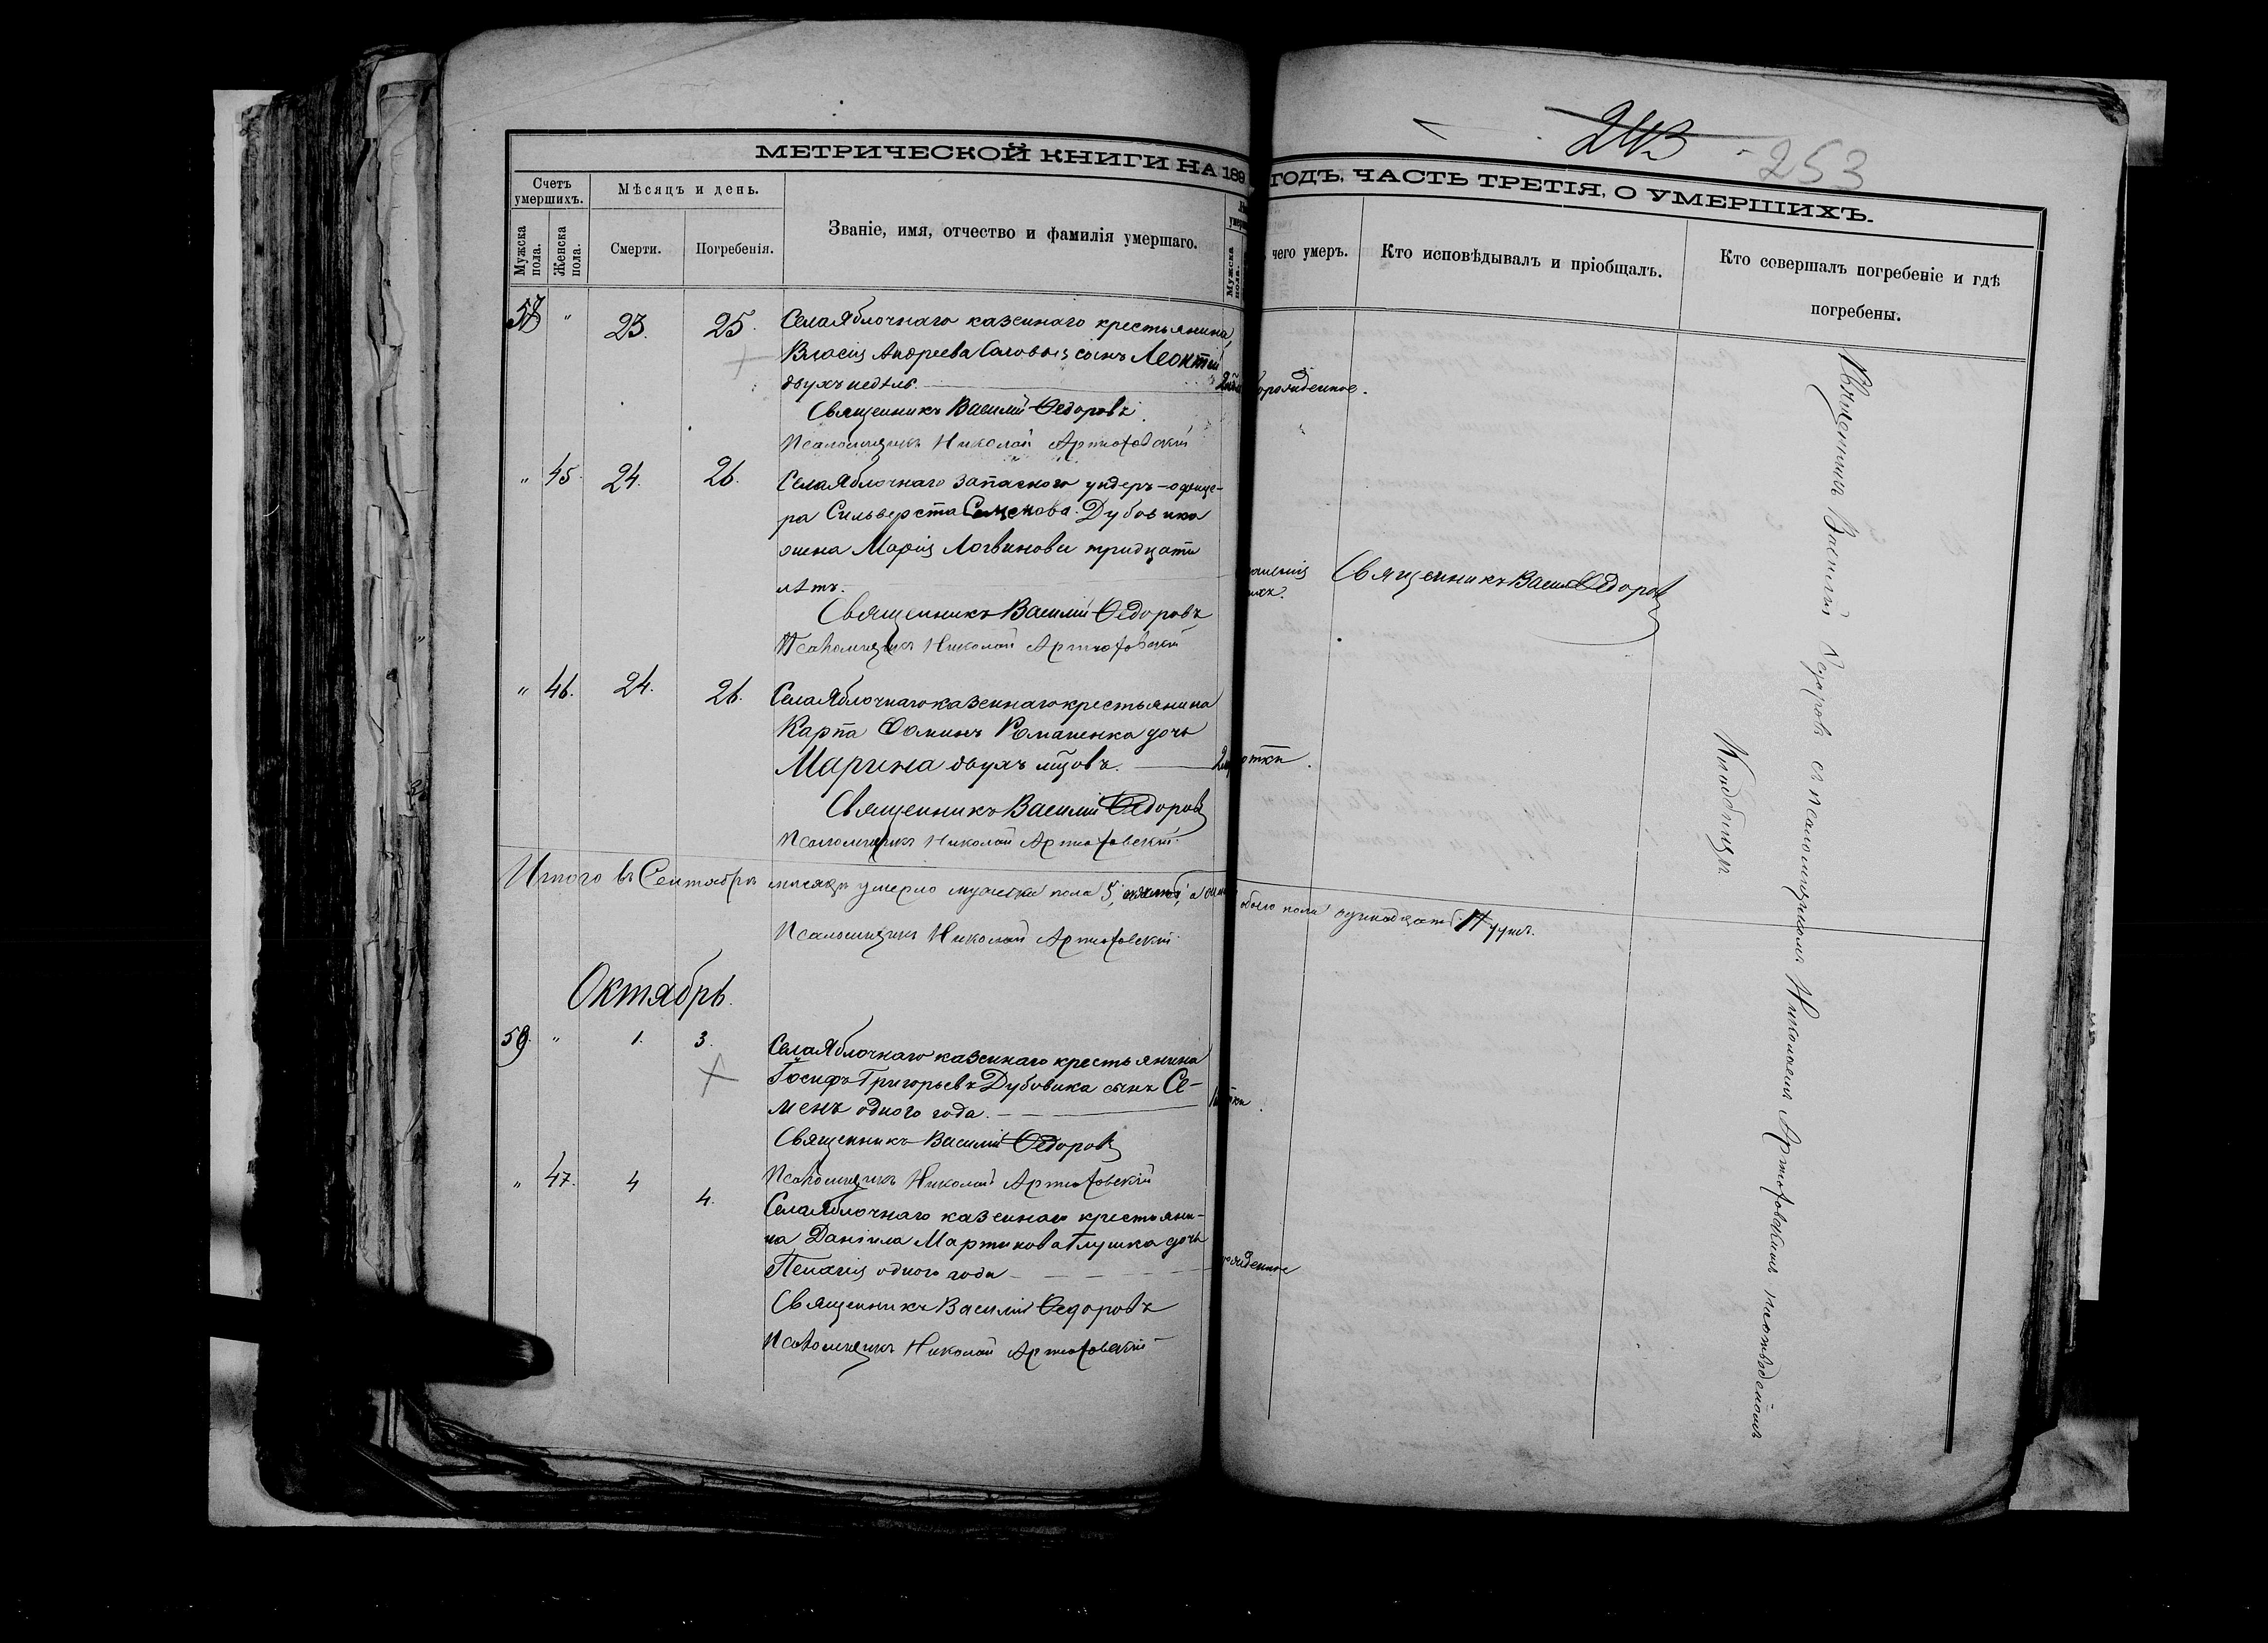 243
253
МЕТРИЧЕСКОЙ КНИГИ НА 188
ГОДЪ, ЧАСТЬ ТРЕТІЯ, О УМЕРШИХЪ.
Счетъ умершихъ.
Мѣсяцъ и день.
Званіе, имя, отчество и фамилія умершаго.
Мужска пола.
Женска пола.
Смерти.
Погребенія.
Мужска пола.
чего умеръ.
Кто исповѣдывалъ и пріобщалъ.
Кто совершалъ погребеніе и гдѣ
погребены.
58 " 23. 25. Села Яблочнаго казеннаго крестьянина
Власія Андреева сынъ Леонтій
двухъ недѣль.
Священникъ Василій Ѳедоровъ
Псаломщикъ Николай Артюховскій
" 45. 24. 26. Села Яблочнаго запаснаго ундеръ-офице-
ра Сильверста Семенова Дубовика
жена Марія Логвинова тридцати
лѣтъ.
Священникъ Василій Ѳедоровъ
Священникъ Василій Ѳедоровъ
Псаломщикъ Николай Артюховскій
" 46. 24. 26. Села Яблочнаго казеннаго крестьянина
Карпа Ѳоминъ Романенка дочь
Марина двухъ мцовъ.
Священникъ Василій Ѳедоровъ
Псаломщикъ Николай Артюховскій
Итого въ Сентябрѣ мѣсяцѣ умерло мужска пола 5, обоего пола одинадцать 11 душъ.
Псаломщикъ Николай Артюховскій
Октябрь.
59. " 1. 3. Села Яблочнаго казеннаго крестьянина
Іосифъ Григорьевъ Дубовика сынъ Се-
менъ одного года.
Священникъ Василій Ѳедоровъ
Псаломщикъ Николай Артюховскій
" 47. 4 4. Села Яблочнаго казеннаго крестьяни-
на Даніила Мартинова Глушка дочь
Пелагія одного года
Священникъ Василій Ѳедоровъ
Псаломщикъ Николай Артюховскій
Священникъ Василій Ѳедоровъ съ псаломщикомъ Николаемъ Артюховскимъ на отведенномъ
Кладбищѣ.